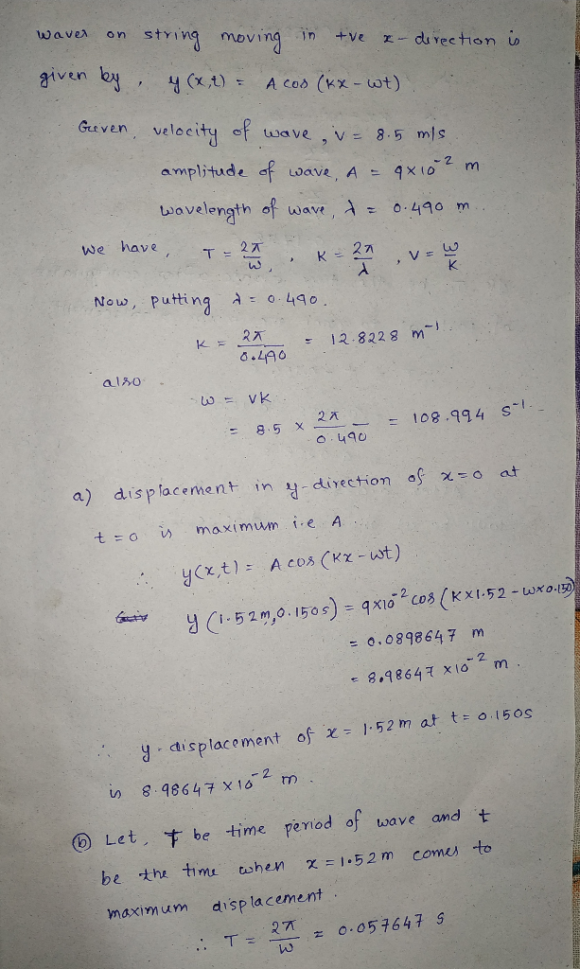 waves on string moving in +ve x-direction is
given by, y(x,t) = A cos (kx - ωt)
Given, velocity of wave, v = 8.5 m/s
amplitude of wave, A = 9×10⁻² m
wavelength of wave, λ = 0.490 m.
we have, T = 2π/ω, K = 2π/λ, v = ω/k
Now, putting λ = 0.490.
K = 2π/0.490 = 12.8228 m⁻¹
also
ω = vk
= 8.5 × 2π/0.490 = 108.994 s⁻¹.
a) displacement in y-direction of x=0 at
t=0 is maximum i.e A.
∴ y(x,t) = A cos (kx - ωt)
y (1.52m, 0.150s) = 9×10⁻² cos (K×1.52 - ω×0.150)
= 0.0898647 m
= 8.98647 ×10⁻² m.
∴ y-displacement of x = 1.52m at t = 0.150s
is 8.98647 ×10⁻² m.
ⓑ Let, T be time period of wave and t
be the time when x = 1.52m comes to
maximum displacement.
∴ T = 2π/ω = 0.057647 s